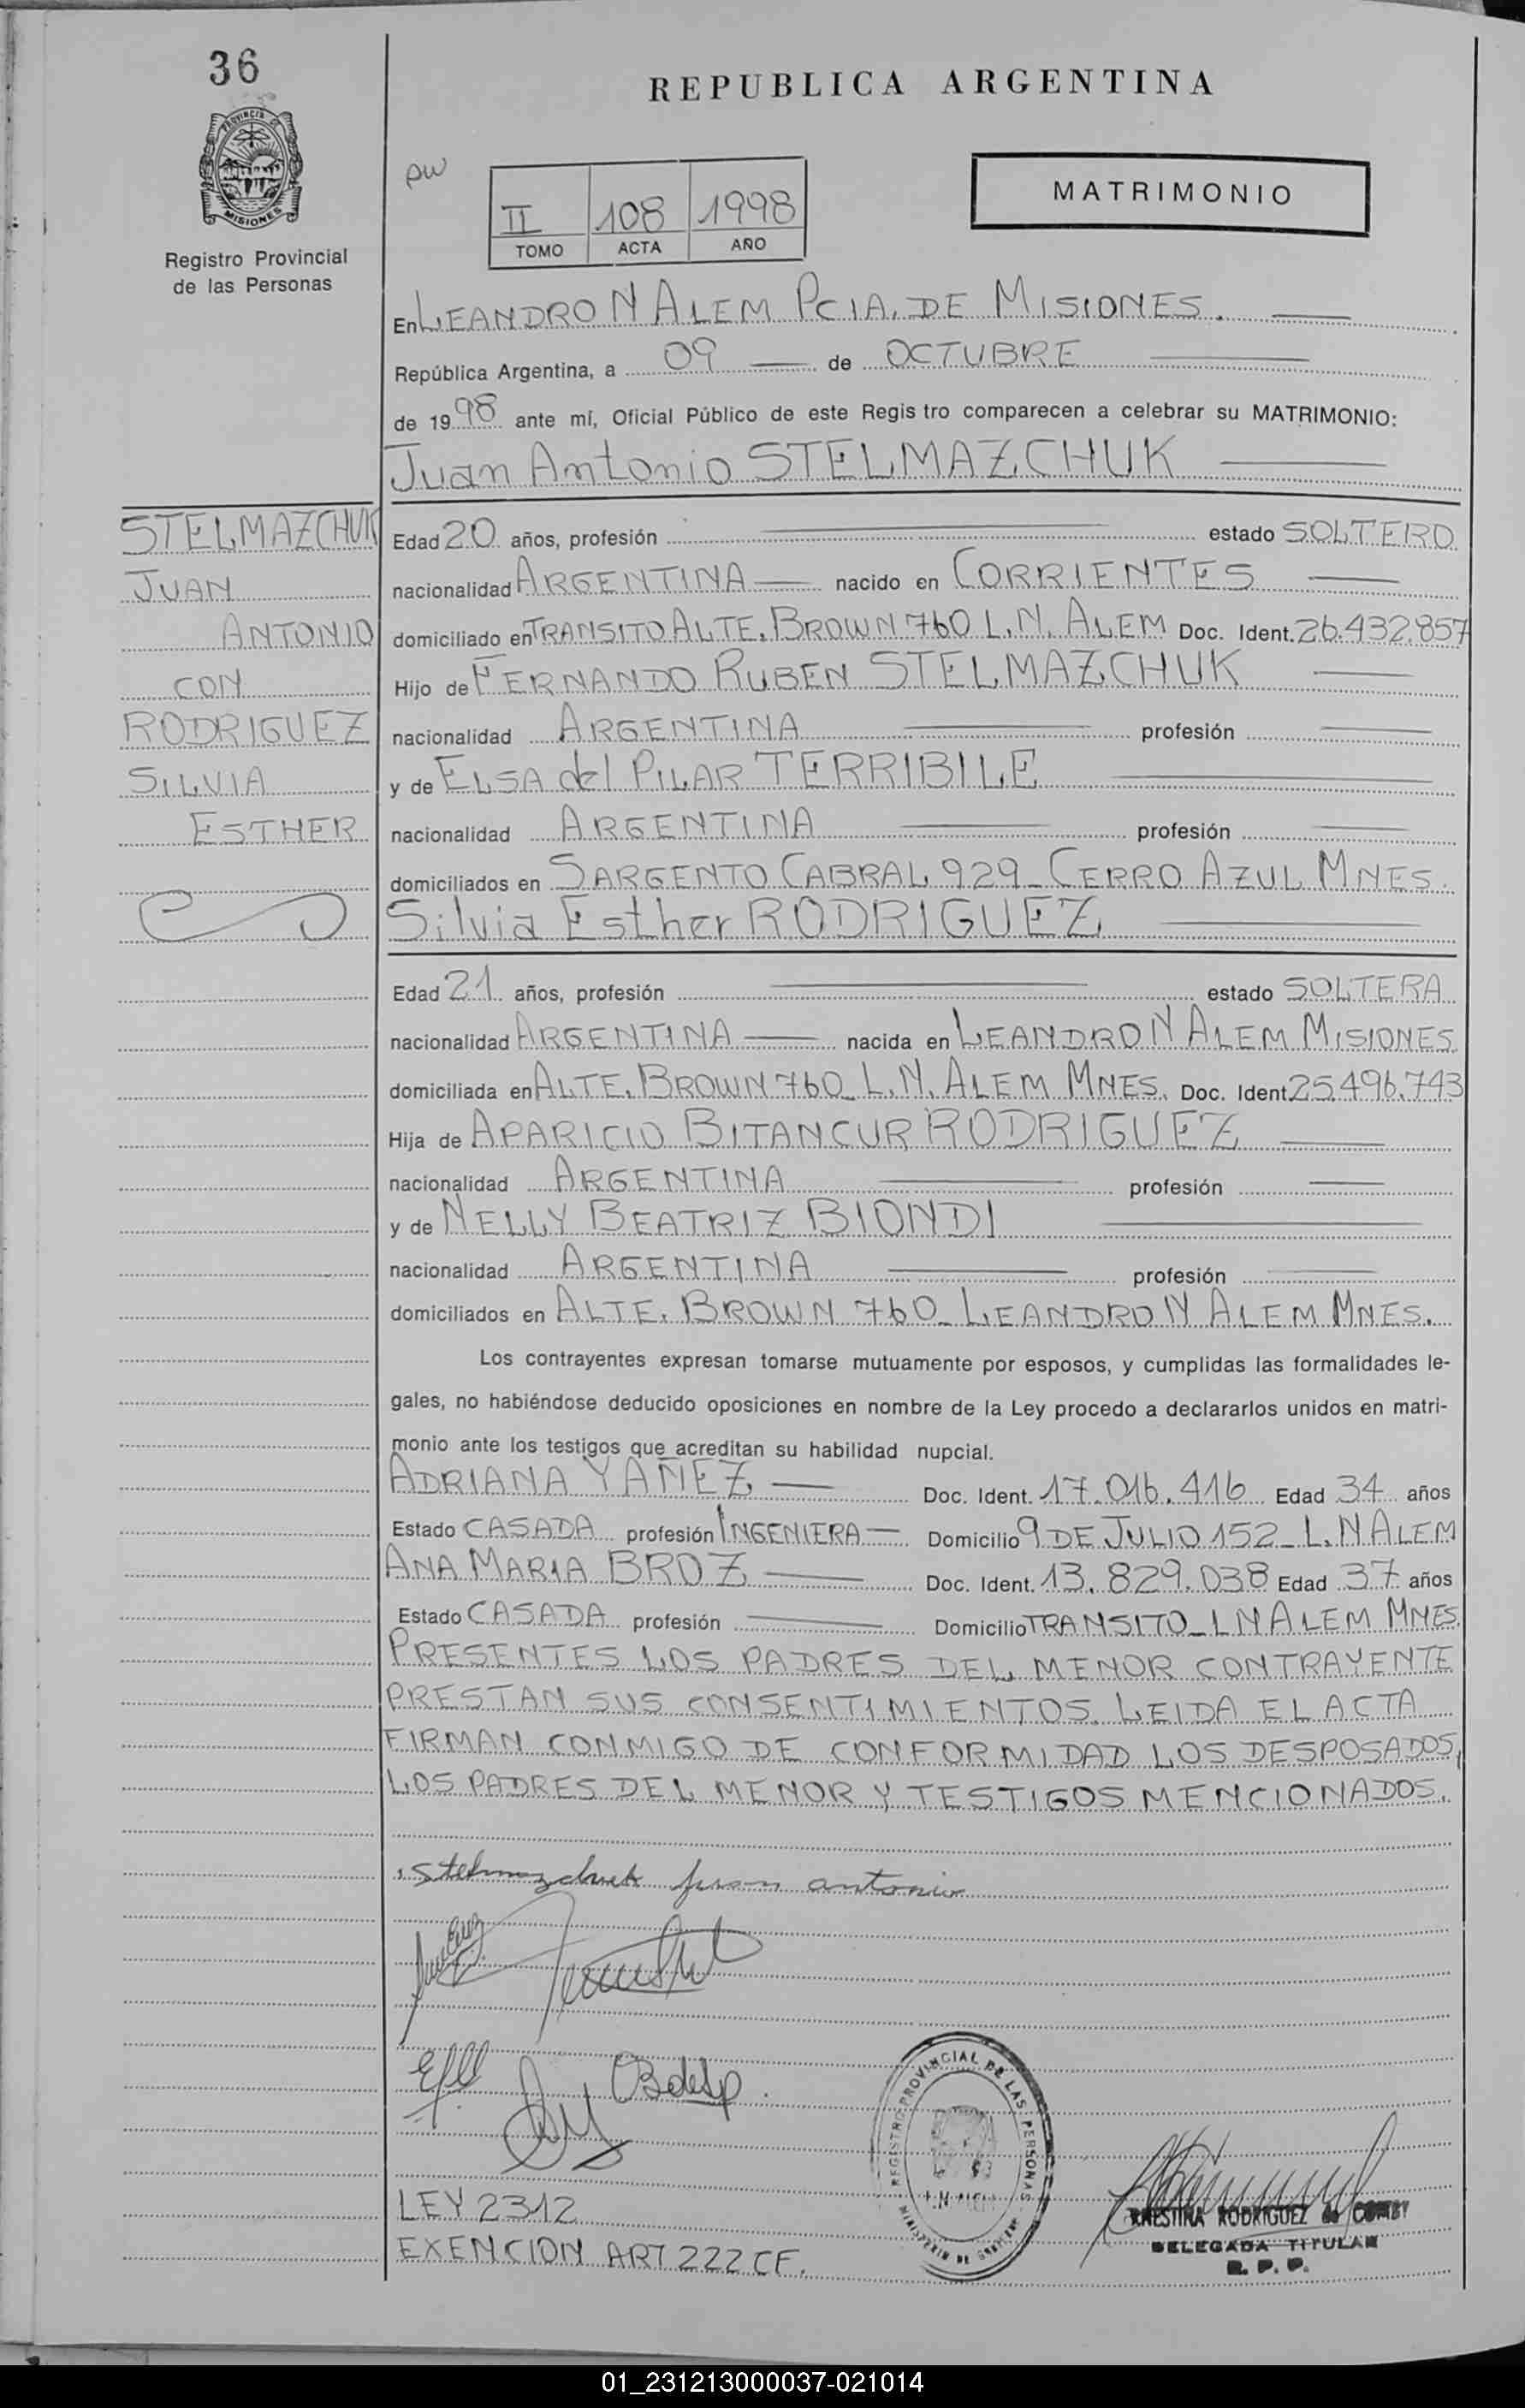 36
REPUBLICA ARGENTINA
PROVINCIA DE
MISIONES
Registro Provincial
de las Personas
II 108 1998
TOMO ACTA AÑO
MATRIMONIO
En LEANDRO N ALEM PCIA. DE MISIONES.
República Argentina, a 09 de OCTUBRE
de 1998 ante mí, Oficial Público de este Regis tro comparecen a celebrar su MATRIMONIO:
Juan Antonio STELMAZCHUK
STELMAZCHUK
JUAN
ANTONIO
CON
RODRIGUEZ
SILVIA
ESTHER
Edad 20 años, profesión estado SOLTERO
nacionalidad ARGENTINA nacido en CORRIENTES
domiciliado en TRANSITO ALTE. BROWN 760 L.N. ALEM Doc. Ident. 26.432.857
Hijo de FERNANDO RUBEN STELMAZCHUK
nacionalidad ARGENTINA profesión
y de ELSA del PILAR TERRIBILE
nacionalidad ARGENTINA profesión
domiciliados en SARGENTO CABRAL 929_ CERRO AZUL MNES.
Silvia Esther RODRIGUEZ
Edad 21 años, profesión estado SOLTERA
nacionalidad ARGENTINA nacida en LEANDRO N ALEM MISIONES
domiciliada en ALTE. BROWN 760_ L.N. ALEM MNES. Doc. Ident 25.496.743
Hija de APARICIO BITANCUR RODRIGUEZ
nacionalidad ARGENTINA profesión
y de NELLY BEATRIZ BIONDI
nacionalidad ARGENTINA profesión
domiciliados en ALTE. BROWN 760_ LEANDRO N ALEM MNES.
Los contrayentes expresan tomarse mutuamente por esposos, y cumplidas las formalidades le-
gales, no habiéndose deducido oposiciones en nombre de la Ley procedo a declararlos unidos en matri-
monio ante los testigos que acreditan su habilidad nupcial.
ADRIANA YAÑEZ Doc. Ident. 17.016.416 Edad 34 años
Estado CASADA profesión INGENIERA Domicilio 9 DE JULIO 152_ L.N ALEM
ANA MARIA BROZ Doc. Ident. 13.829.038 Edad 37 años
Estado CASADA profesión Domicilio TRANSITO_ L N ALEM MNES.
PRESENTES LOS PADRES DEL MENOR CONTRAYENTE
PRESTAN SUS CONSENTIMIENTOS. LEIDA EL ACTA
FIRMAN CONMIGO DE CONFORMIDAD LOS DESPOSADOS,
LOS PADRES DEL MENOR Y TESTIGOS MENCIONADOS.
Stelmazchuk juan antonio
REGISTRO PROVINCIAL DE LAS PERSONAS
LEY 2312
EXENCION ART 222 CF.
RODRIGUEZ de
DELEGADA TITULAR
R. P. P.
01_231213000037-021014